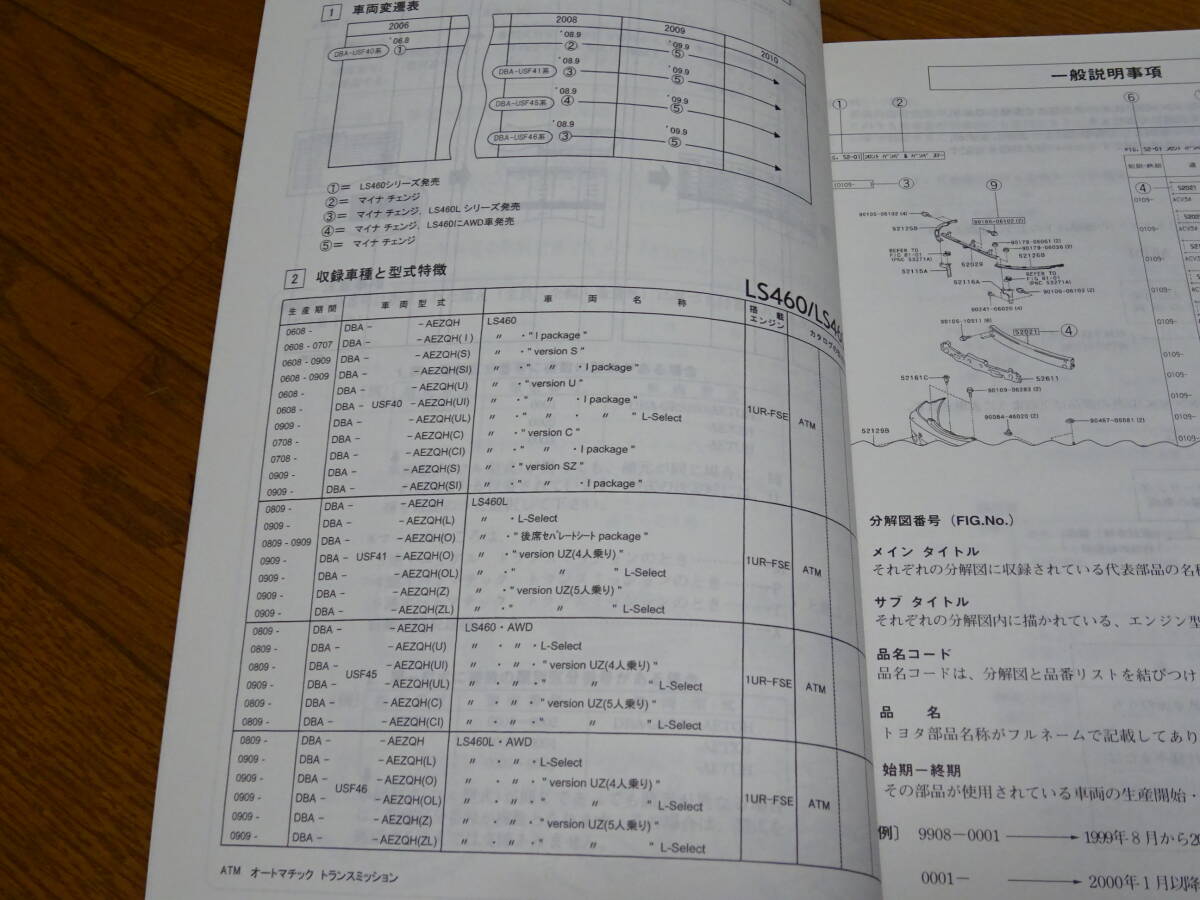 1 車両変遷表
2006 2008 2009 2010
DBA-USF40系 '06.8 ① '08.9 ② '09.9 ⑤
DBA-USF41系 '08.9 ③ '09.9 ⑤
DBA-USF45系 '08.9 ④ '09.9 ⑤
DBA-USF46系 '08.9 ③ '09.9 ⑤
①= LS460シリーズ発売
②= マイナ チェンジ
③= マイナ チェンジ、LS460L シリーズ発売
④= マイナ チェンジ、LS460にAWD車発売
⑤= マイナ チェンジ
2 収録車種と型式特徴
LS460/LS46
生産期間 車両型式 車両名称 搭載エンジン
0608 - DBA - -AEZQH LS460
0608 - 0707 DBA - -AEZQH(I) 〃 ・" I package "
0608 - 0909 DBA - -AEZQH(S) 〃 ・" version S "
0608 - 0909 DBA - -AEZQH(SI) 〃 ・" 〃 ・I package "
0608 - DBA - -AEZQH(U) 〃 ・" version U "
0608 - DBA - USF40 -AEZQH(UI) 〃 ・" 〃 ・I package " 1UR-FSE ATM
0909 - DBA - -AEZQH(UL) 〃 ・" 〃 ・ 〃 " L-Select
0708 - DBA - -AEZQH(C) 〃 ・" version C "
0708 - DBA - -AEZQH(CI) 〃 ・" 〃 ・I package "
0909 - DBA - -AEZQH(S) 〃 ・" version SZ "
0909 - DBA - -AEZQH(SI) 〃 ・" 〃 ・I package "
0809 - DBA - -AEZQH LS460L
0909 - DBA - -AEZQH(L) 〃 ・L-Select
0809 - 0909 DBA - -AEZQH(O) 〃 ・" 後席ｾﾊﾟﾚｰﾄｼｰﾄ package "
0909 - DBA - USF41 -AEZQH(O) 〃 ・" version UZ(4人乗り) " 1UR-FSE ATM
0909 - DBA - -AEZQH(OL) 〃 ・" 〃 " L-Select
0909 - DBA - -AEZQH(Z) 〃 ・" version UZ(5人乗り) "
0909 - DBA - -AEZQH(ZL) 〃 ・" 〃 " L-Select
0809 - DBA - -AEZQH LS460・AWD
0809 - DBA - -AEZQH(U) 〃 ・ 〃 ・L-Select
0809 - DBA - USF45 -AEZQH(UI) 〃 ・ 〃 ・" version UZ(4人乗り) "
0909 - DBA - -AEZQH(UL) 〃 ・ 〃 ・" 〃 " L-Select 1UR-FSE ATM
0809 - DBA - -AEZQH(C) 〃 ・ 〃 ・" version UZ(5人乗り) "
0809 - DBA - -AEZQH(CI) 〃 ・ 〃 ・" 〃 " L-Select
0809 - DBA - -AEZQH LS460L・AWD
0909 - DBA - -AEZQH(L) 〃 ・ 〃 ・L-Select
0909 - DBA - USF46 -AEZQH(O) 〃 ・ 〃 ・" version UZ(4人乗り) "
0909 - DBA - -AEZQH(OL) 〃 ・ 〃 ・" 〃 " L-Select 1UR-FSE ATM
0909 - DBA - -AEZQH(Z) 〃 ・ 〃 ・" version UZ(5人乗り) "
0909 - DBA - -AEZQH(ZL) 〃 ・ 〃 ・" 〃 " L-Select
ATM オートマチック トランスミッション
一般説明事項
① ② ⑥
52-01
0109- ③ ⑨ ④ 52021
90105-06102 (4) 90105-06102 (2) 0109- ACV3#
52125B 90179-06061 (2)
90179-06036 (2)
REFER TO FIG 81-01 (PNC 53271A) 52029 52126B
52115A REFER TO FIG 81-01 (PNC 53271A)
52116A 90106-06102 (2)
90241-06020 (4)
90105-10211 (6) 52021 ④
52161C 52611
90109-06283 (2)
90084-46020 (2) 90467-05081 (2)
52129B
分解図番号（FIG.No.）
メイン タイトル
それぞれの分解図に収録されている代表部品の名
サブ タイトル
それぞれの分解図内に描かれている、エンジン型
品名コード
品名コードは、分解図と品番リストを結びつけ
品 名
トヨタ部品名称がフルネームで記載してあり
始期－終期
その部品が使用されている車両の生産開始・
例〕 9908－0001 → 1999年8月から20
0001－ → 2000年1月以降